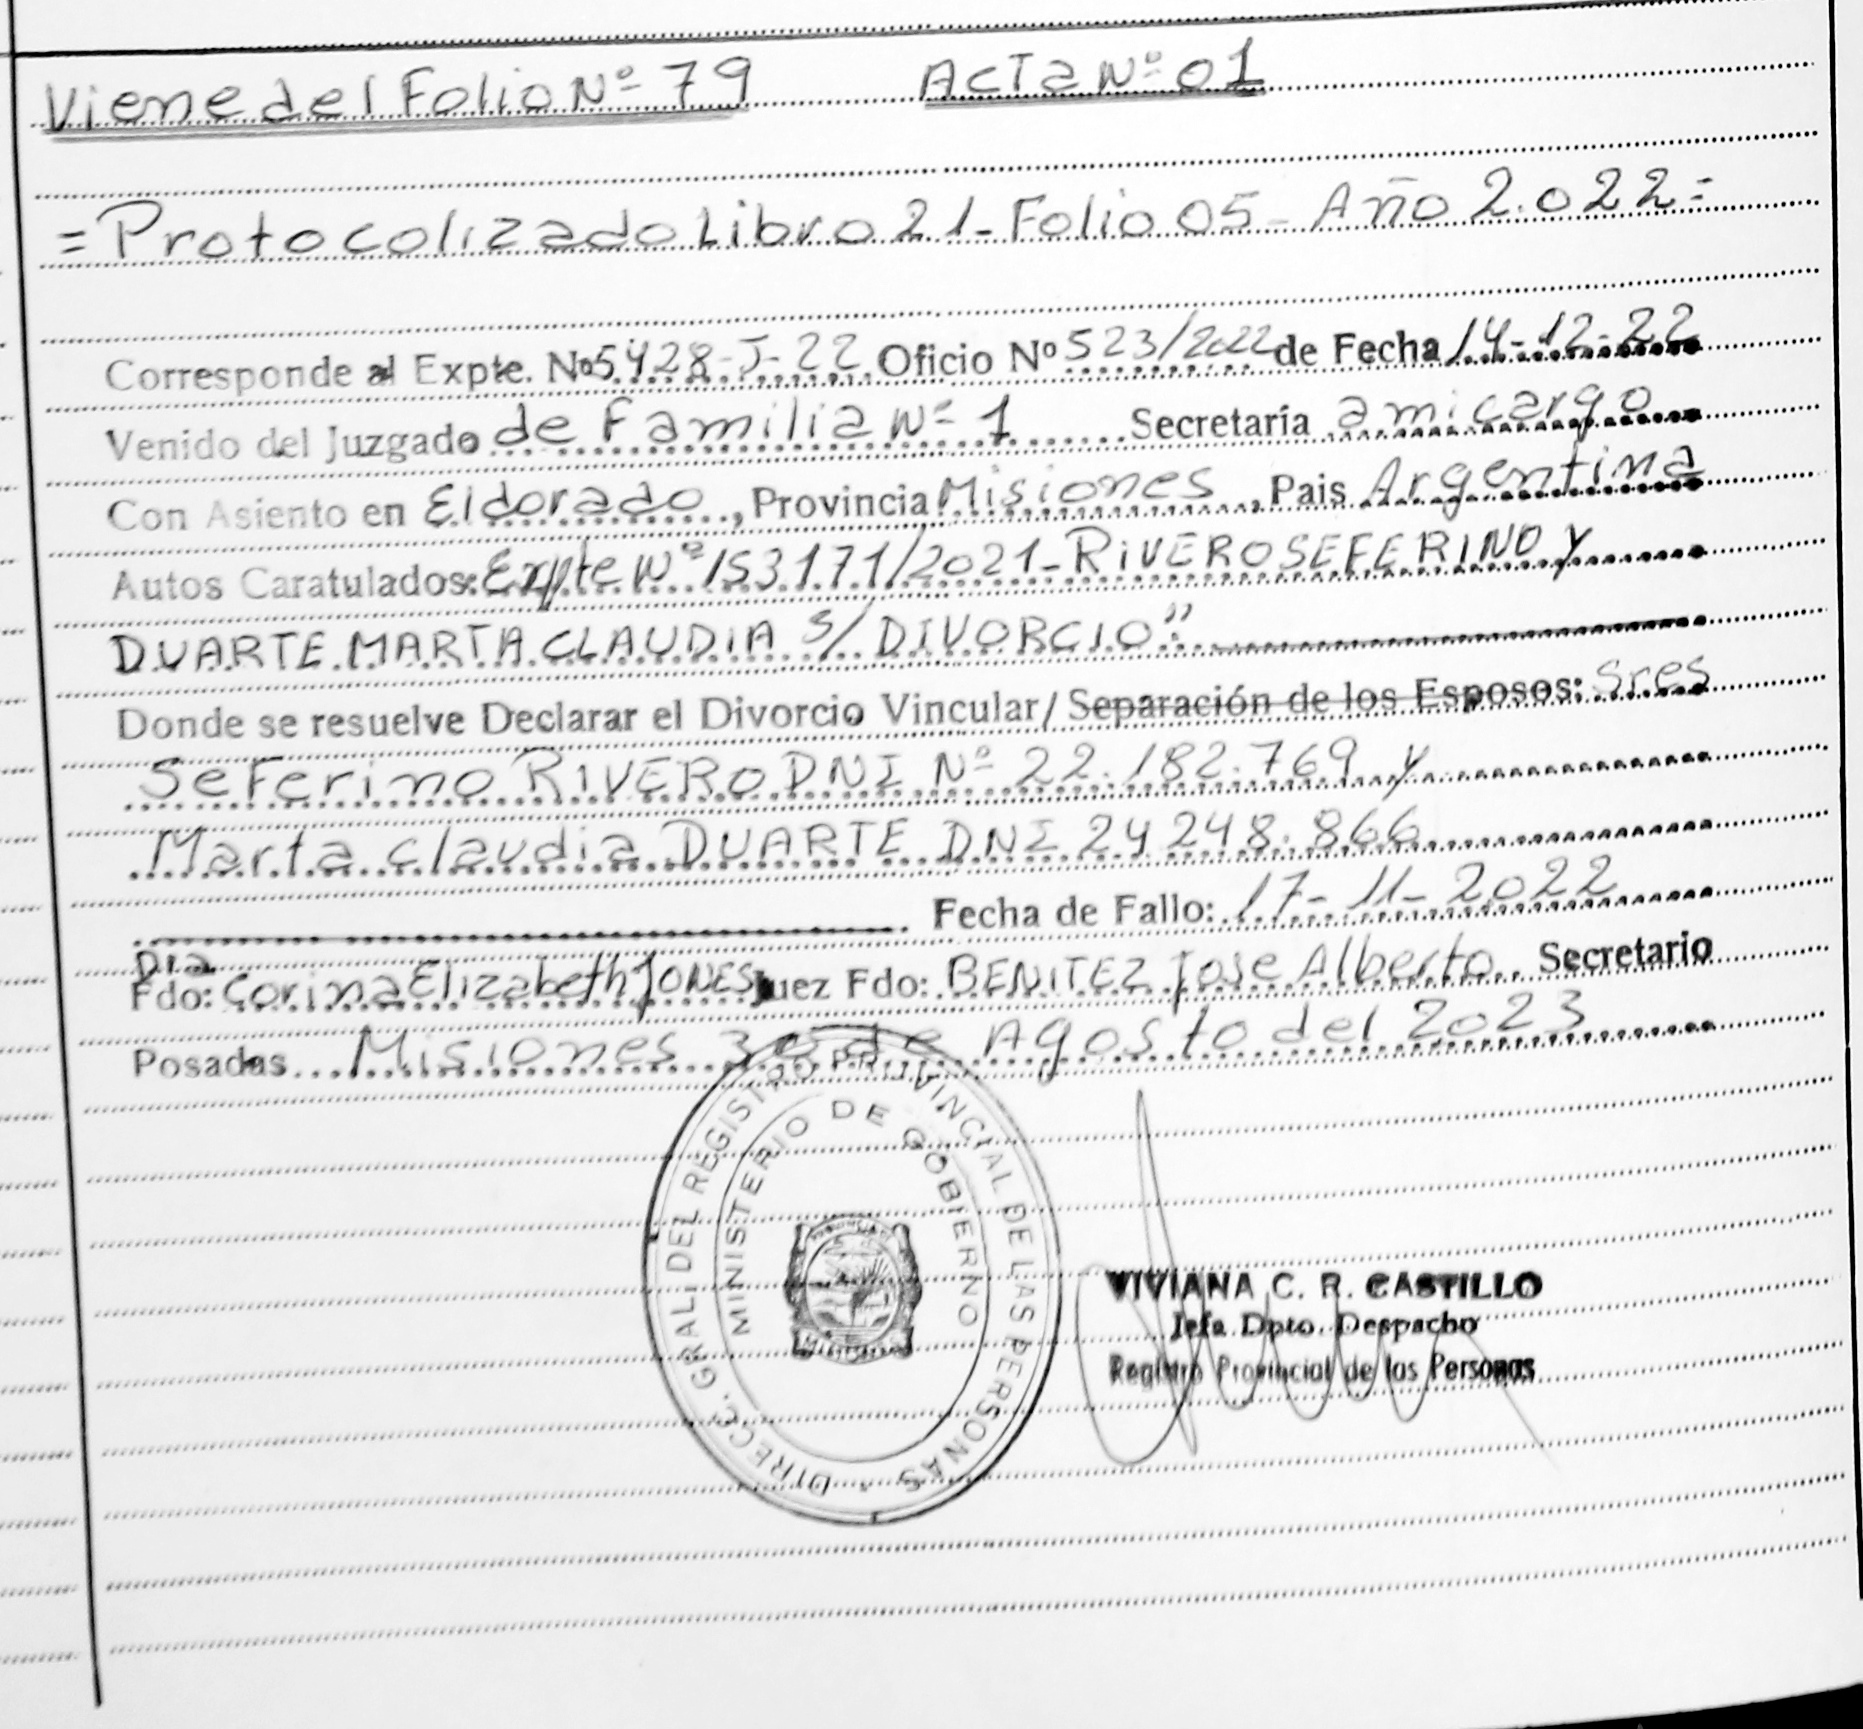 Viene del Folio Nº 79 Acta Nº 01
= Protocolizado Libro 21 - Folio 05 - Año 2.022 =
Corresponde al Expte. Nº 5428-J-22 Oficio Nº 523/2022 de Fecha 14-12-22
Venido del Juzgado de Familia Nº 1 Secretaría a mi cargo
Con Asiento en Eldorado, Provincia Misiones, Pais Argentina
Autos Caratulados: Expte Nº 153171/2021 - RIVERO SEFERINO Y
DUARTE MARTA CLAUDIA S/ DIVORCIO"
Donde se resuelve Declarar el Divorcio Vincular/ Separación de los Esposos: Sres
Seferino RIVERO DNI Nº 22.182.769 y
Marta Claudia DUARTE DNI 24 248.866
Fecha de Fallo: 17-11-2022
Dra
Fdo: Corina Elizabeth JONES Juez Fdo: BENITEZ Jose Alberto Secretario
Posadas Misiones 30 de Agosto del 2023
DIRECC. GRAL. DEL REGISTRO PROVINCIAL DE LAS PERSONAS
MINISTERIO DE GOBIERNO
PROVINCIA
MISIONES
VIVIANA C. R. CASTILLO
Jefa Dpto. Despacho
Registro Provincial de las Personas